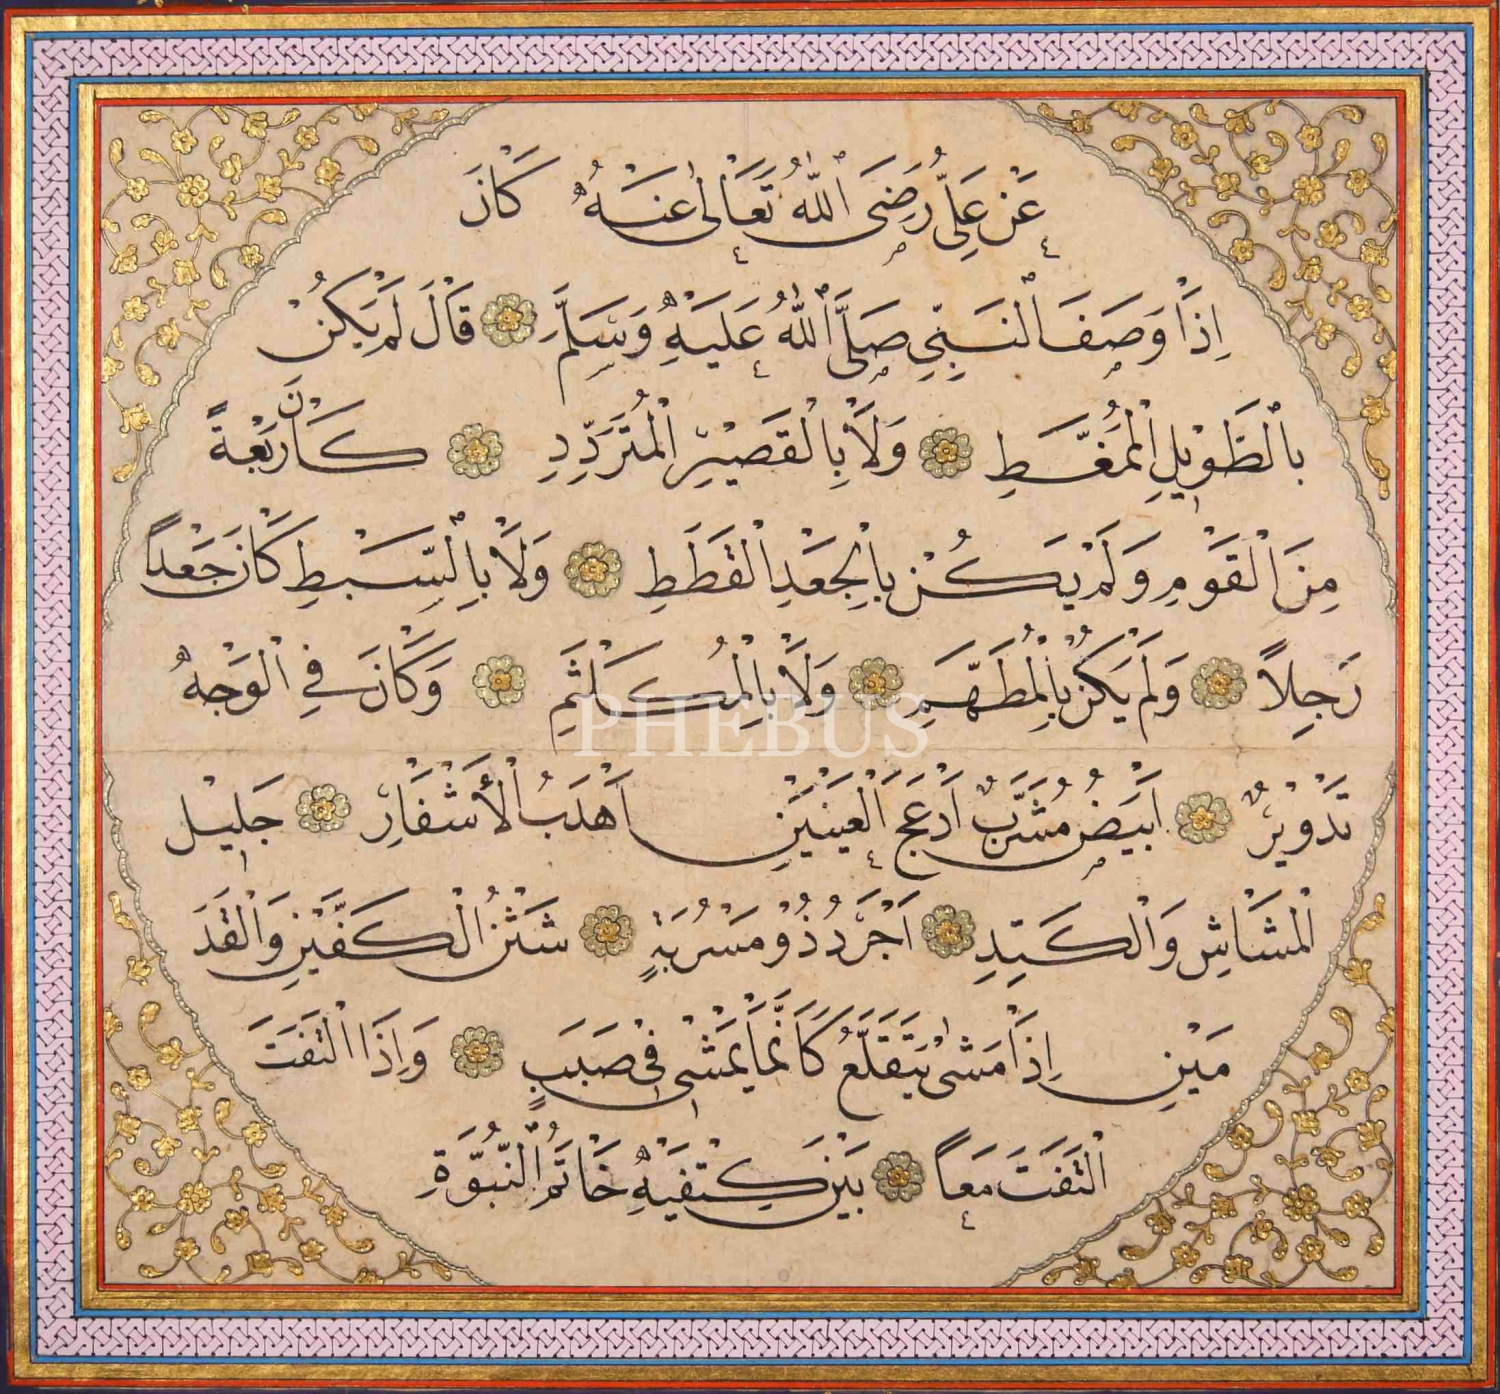 عَنْ عَلِيٍّ رَضِيَ اللّٰهُ تَعَالٰى عَنْهُ كَانَ
اِذَا وَصَفَ النَّبِيَّ صَلَّى اللّٰهُ عَلَيْهِ وَسَلَّمَ قَالَ لَمْ يَكُنْ
بِالطَّوِيلِ الْمُمَّغِطِ وَلَا بِالْقَصِيْرِ الْمُتَرَدِّدِ كَانَ رَبْعَةً
مِنَ الْقَوْمِ وَلَمْ يَكُنْ بِالْجَعْدِ الْقَطَطِ وَلَا بِالسَّبِطِ كَانَ جَعْدًا
رَجِلًا وَلَمْ يَكُنْ بِالْمُطَهَّمِ وَلَا بِالْمُكَلْثَمِ وَكَانَ فِي الْوَجْهِ
تَدْوِيْرٌ اَبْيَضُ مُشَرَّبٌ اَدْعَجُ الْعَيْنَيْنِ اَهْدَبُ الْأَشْفَارِ جَلِيْلُ
الْمَشَاشِ وَالْكَتِدِ اَجْرَدُ ذُوْ مَسْرُبَةٍ شَثْنُ الْكَفَّيْنِ وَالْقَدَ
مَيْنِ اِذَا مَشٰى يَتَقَلَّعُ كَاَنَّمَا يَمْشِيْ فِيْ صَبَبٍ وَاِذَا الْتَفَتَ
الْتَفَتَ مَعًا بَيْنَ كَتِفَيْهِ خَاتَمُ النُّبُوَّةِ
PHEBUS